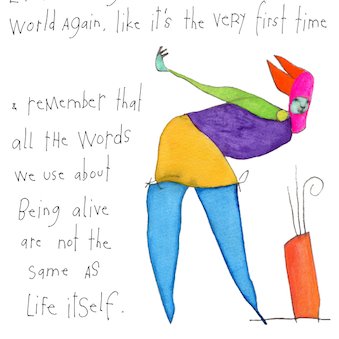 world again, like it's the very first time
& remember that
all the words
we use about
Being alive
are not the
same as
Life itself.